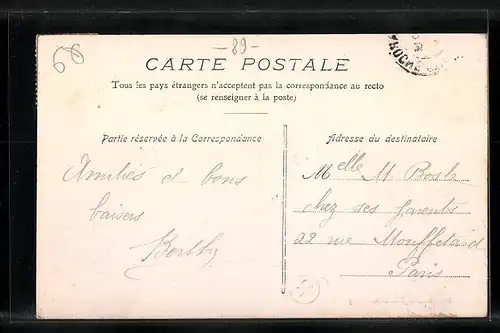 -89-
CARTE POSTALE
Tous les pays étrangers n'acceptent pas la correspondance au recto
(se renseigner à la poste)
Partie réservée à la Correspondance
Amitiés et bons
baisers
Berthy
Adresse du destinataire
Melle M. Bosk
chez ses parents
22 rue Mouffetard
Paris